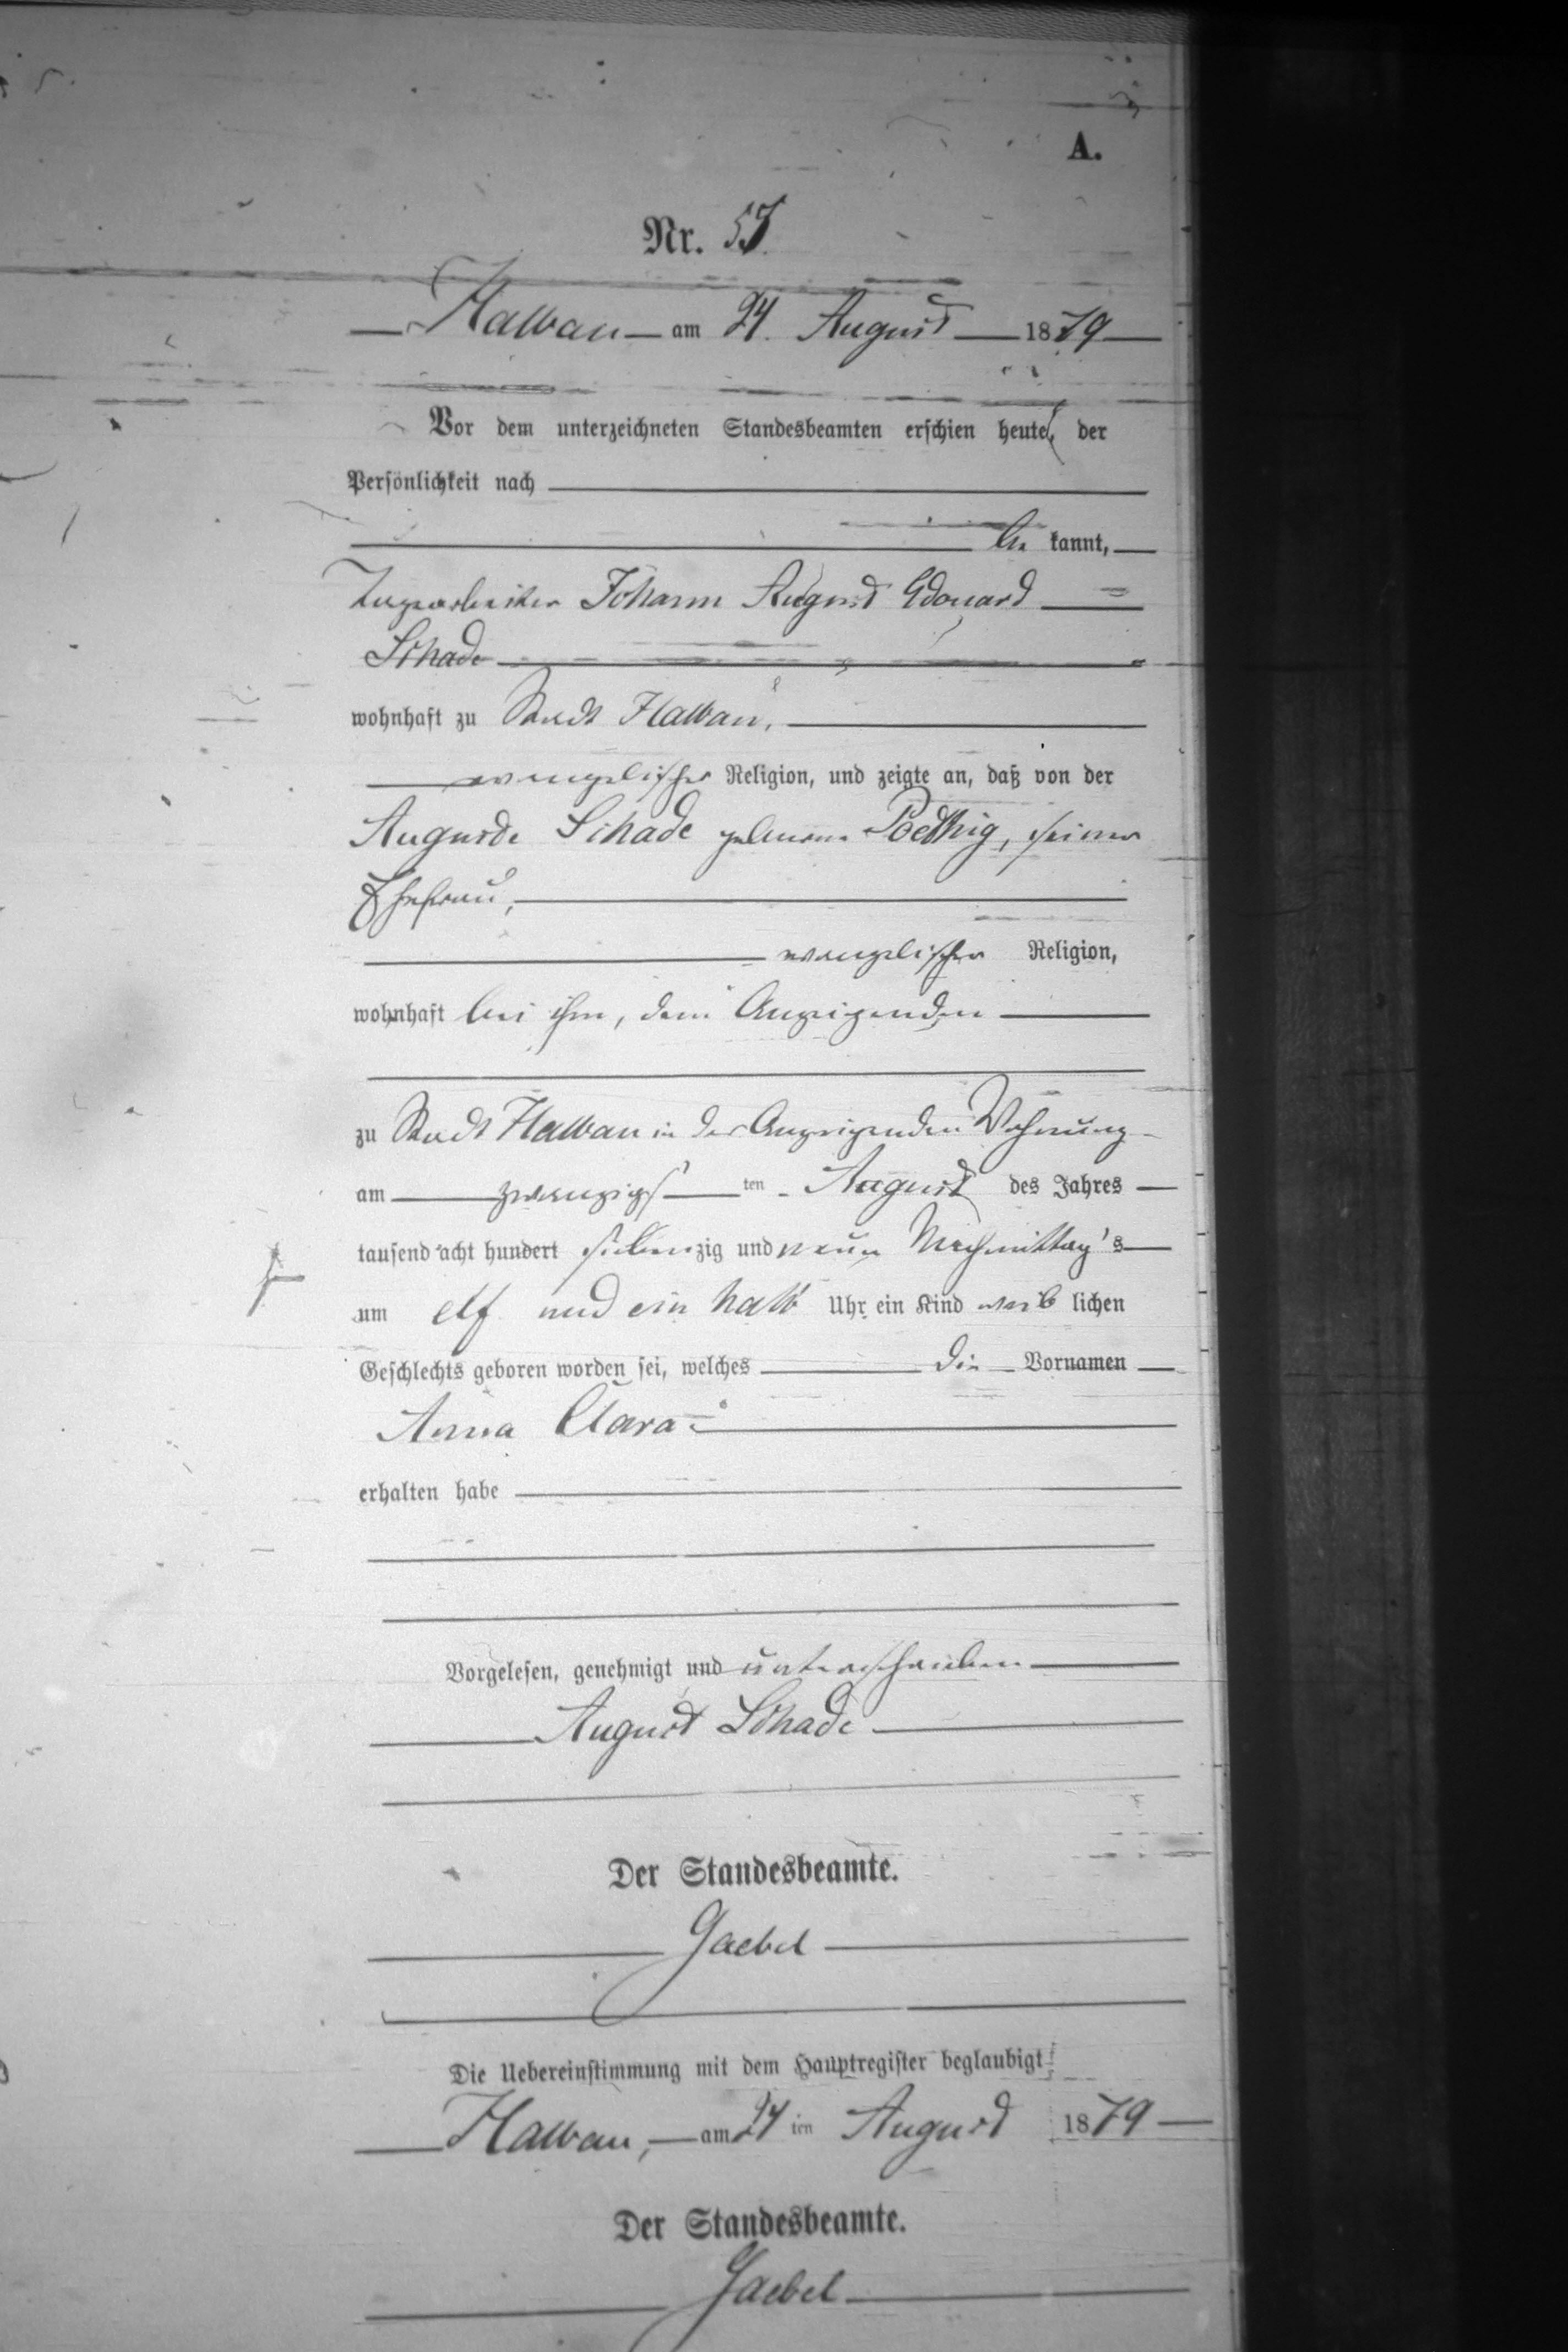 A.
Nr. 57.
Halbau am 24. August 1879
Vor dem unterzeichneten Standesbeamten erschien heute, der
Persönlichkeit nach
be kannt,
Johann August Edouard
Schade
wohnhaft zu Stadt Halbau,
evangelischer Religion, und zeigte an, daß von der
Auguste Schade geborene Poethig, seiner
Ehefrau,
evangelischer Religion,
wohnhaft bei ihm, dem Anzeigenden
zu Stadt Halbau in des Anzeigenden Wohnung
am zwanzigs ten August des Jahres
tausend acht hundert sieben zig und neun Nachmittag's
um elf und ein halb Uhr ein Kind weib lichen
Geschlechts geboren worden sei, welches die Vornamen
Anna Clara
erhalten habe
Vorgelesen, genehmigt und unterschrieben
August Schade
Der Standesbeamte.
Gaebel
Die Uebereinstimmung mit dem Hauptregister beglaubigt
Halbau, am 24 ten August 1879
Der Standesbeamte.
Gaebel